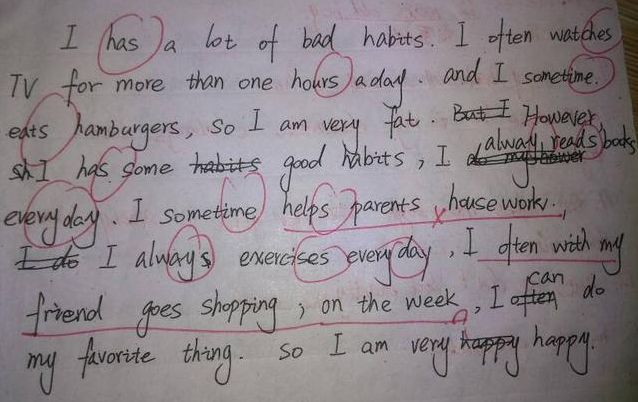 I has a lot of bad habits. I often watches
TV for more than one hours a day. and I sometime.
eats hamburgers, so I am very fat. But I However,
sh I has some habits good habits, I do my hower alway reads books
every day. I sometime helps parents housework.
I do I always exercises every day, I often with my
friend goes shopping, on the week, I often can do
my favorite thing. so I am very happy happy.